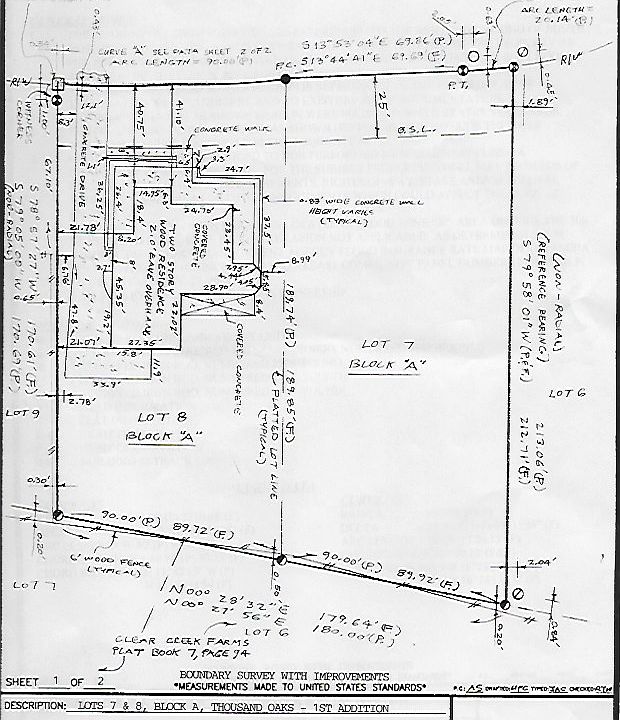 ARC LENGTH=
20.14'(P.)
CURVE "A" SEE DATA SHEET 2 OF 2
(ARC LENGTH = 90.00'(P.)
S 13°53'04"E 69.86'(P.)
P.C. S 13°44'41"E 69.69'(F.)
P.T.
R/W
R/W
1.89'
25'
B.S.L.
40.75'
41.10'
CONCRETE WALK
WITNESS
CORNER
1.00'
CONCRETE DRIVE
2.9'
3.3'
24.7'
0.83' WIDE CONCRETE WALL
HEIGHT VARIES
(TYPICAL)
67.10'
36.25'
26.4'
14.95'
18.4'
24.75'
23.45'
37.5'
21.73'
8.20'
TWO STORY
WOOD RESIDENCE
2.0' EAVE OVERHANG
COVERED
CONCRETE
8.99'
2.7'
8'
7.95'
28.90'
8.4'
6.76'
0.65'
47.8'
45.35'
19.2'
22.07'
21.07'
27.35'
15.8'
11.9'
33.9'
2.78'
COVERED CONCRETE
S 78°57'27"W 170.61'(F.)
S 79°05'00"W 170.69'(P.)
(NON-RADIAL)
LOT 9
189.74'(P.)
189.85'(F.)
PLATTED LOT LINE
(TYPICAL)
LOT 7
BLOCK "A"
(NON-RADIAL)
(REFERENCE BEARING)
S 79°58'01"W (P.&F.)
213.06'(P.)
212.71'(F.)
LOT 6
LOT 8
BLOCK "A"
0.30'
0.20'
90.00'(P.)
89.72'(F.)
6' WOOD FENCE
(TYPICAL)
0.50'
90.00'(P.)
89.92'(F.)
2.04'
0.20'
0.84'
LOT 7
N 00° 28' 32" E
N 00° 27' 56" E
179.64'(F.)
180.00'(P.)
LOT 6
CLEAR CREEK FARMS
PLAT BOOK 7, PAGE 94
SHEET 1 OF 2
BOUNDARY SURVEY WITH IMPROVEMENTS
*MEASUREMENTS MADE TO UNITED STATES STANDARDS*
P.C.: AS DRAFTED: HPC TYPED: JAC CHECKED: RTH
DESCRIPTION: LOTS 7 & 8, BLOCK A, THOUSAND OAKS - 1ST ADDITION